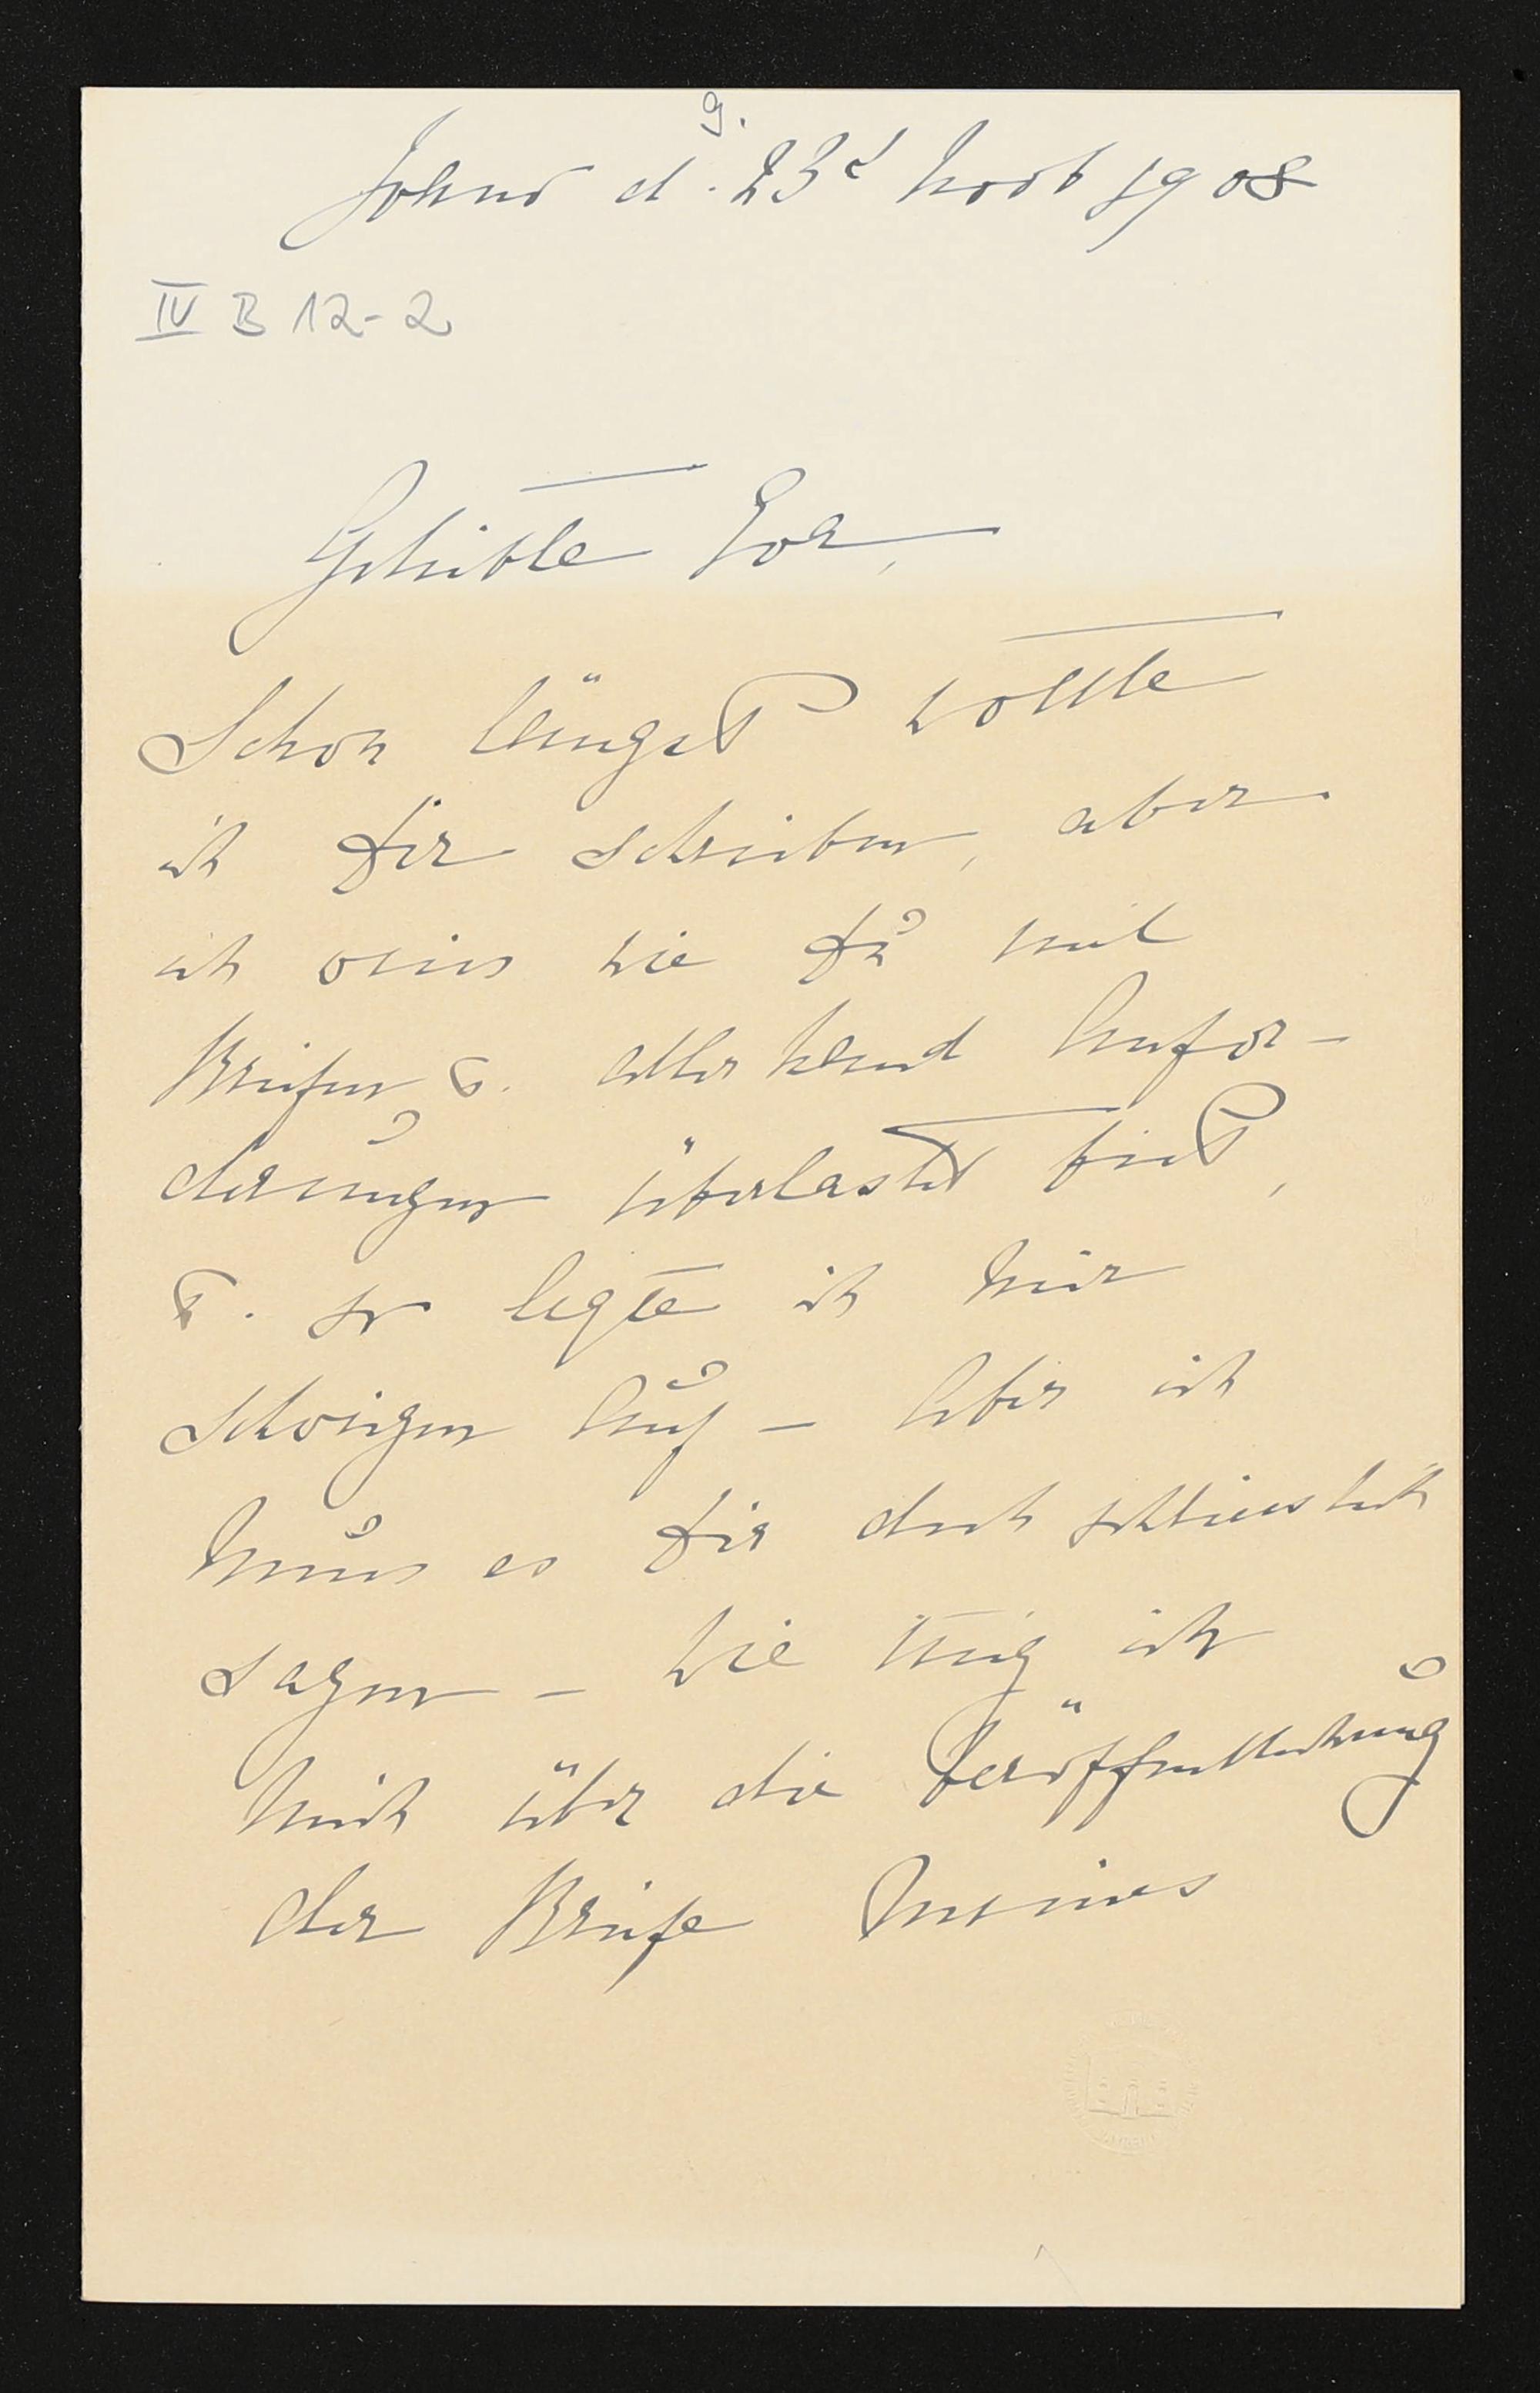 9.
d. 23t Novb 1908
IV B 12-2
Geliebte Eva,
Schon längst wollte
ich Dir schreiben, aber
ich weiss wie Du mit
Briefen u. allerhand Anfor-
derungen überlastet bist,
u. so legte ich mir
Schweigen auf – Aber ich
muss es Dir doch schliesslich
sagen – wie ich
mich über die Veröffentlichung
der Briefe meines